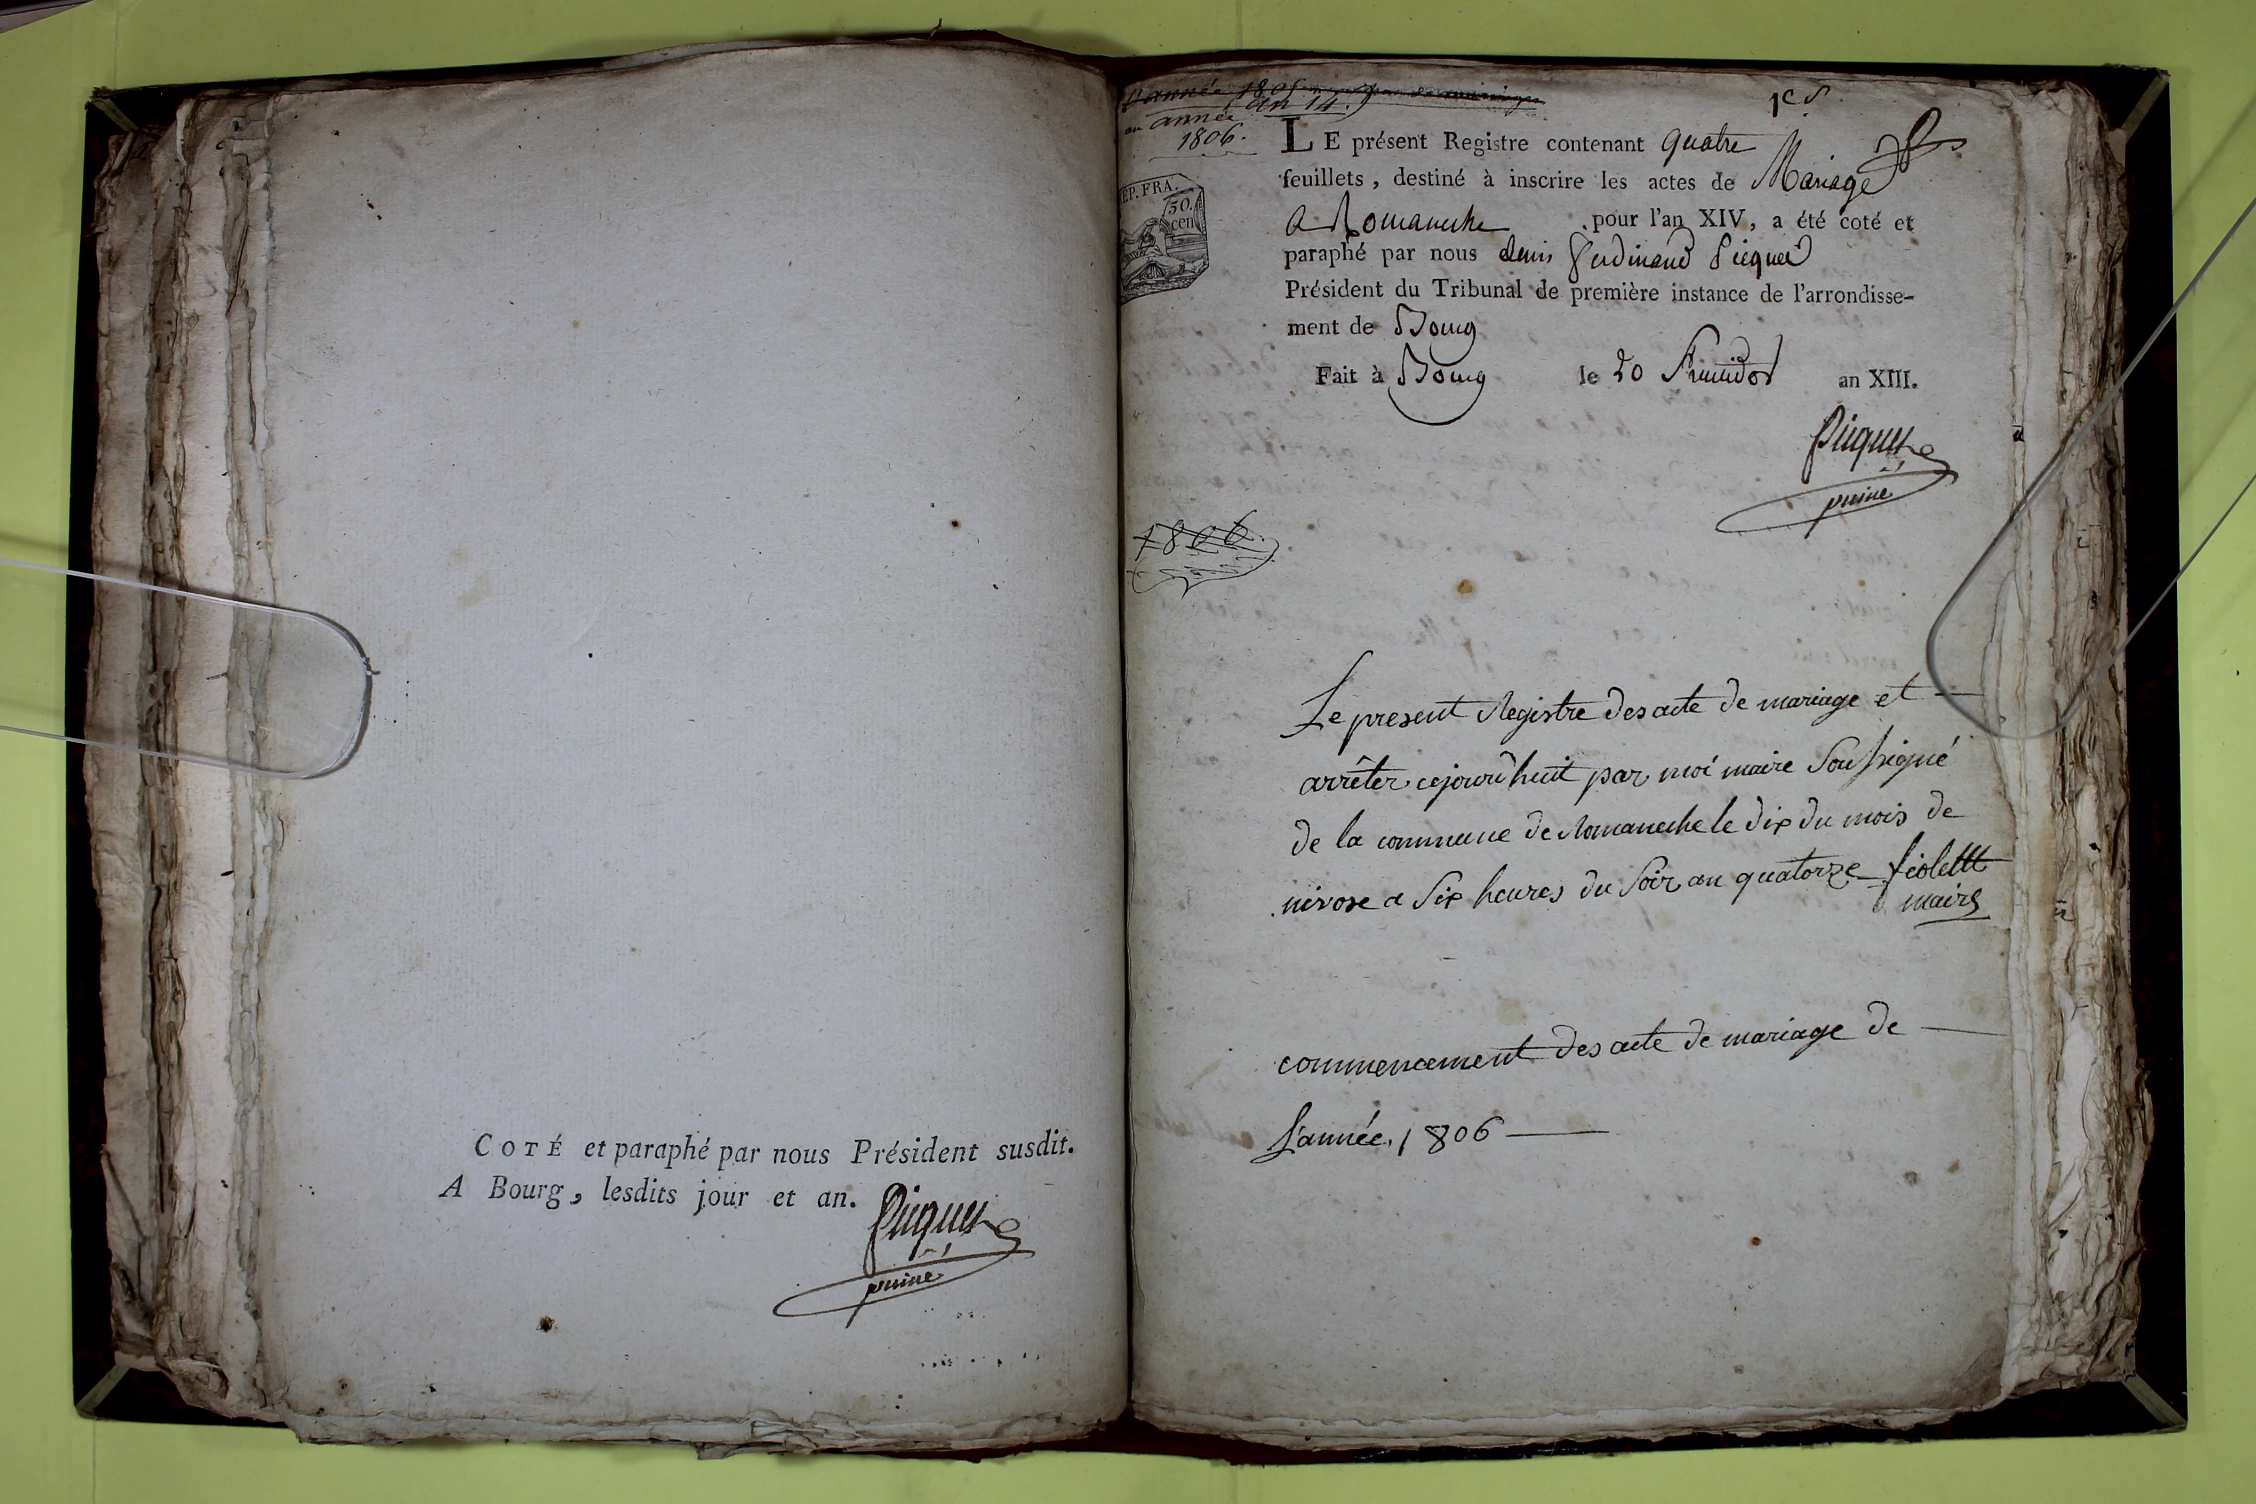 COTÉ et paraphé par nous Président susdit.
A Bourg, lesdits jour et an.
Picquet
puiné
l'année 1805
(an 14.)
ou année
1806.
1er
LE présent Registre contenant quatre
feuillets, destiné à inscrire les actes de Mariage
a Romaneche pour l'an XIV, a été coté et
paraphé par nous denis ferdinand Picquet
Président du Tribunal de première instance de l'arrondisse-
ment de Bourg
Fait à Bourg le 20 Fructidor an XIII.
REP. FRA.
50.
cen
Picquet
puiné
1806.
Le present Registre des acte de mariage et
arrêter cejourd'huit par moi maire Soussigné
de la commune de Romaneche le dix du mois de
nivose a Six heures du Soir an quatorze
maire
commencement des acte de mariage de
L'année, 1806